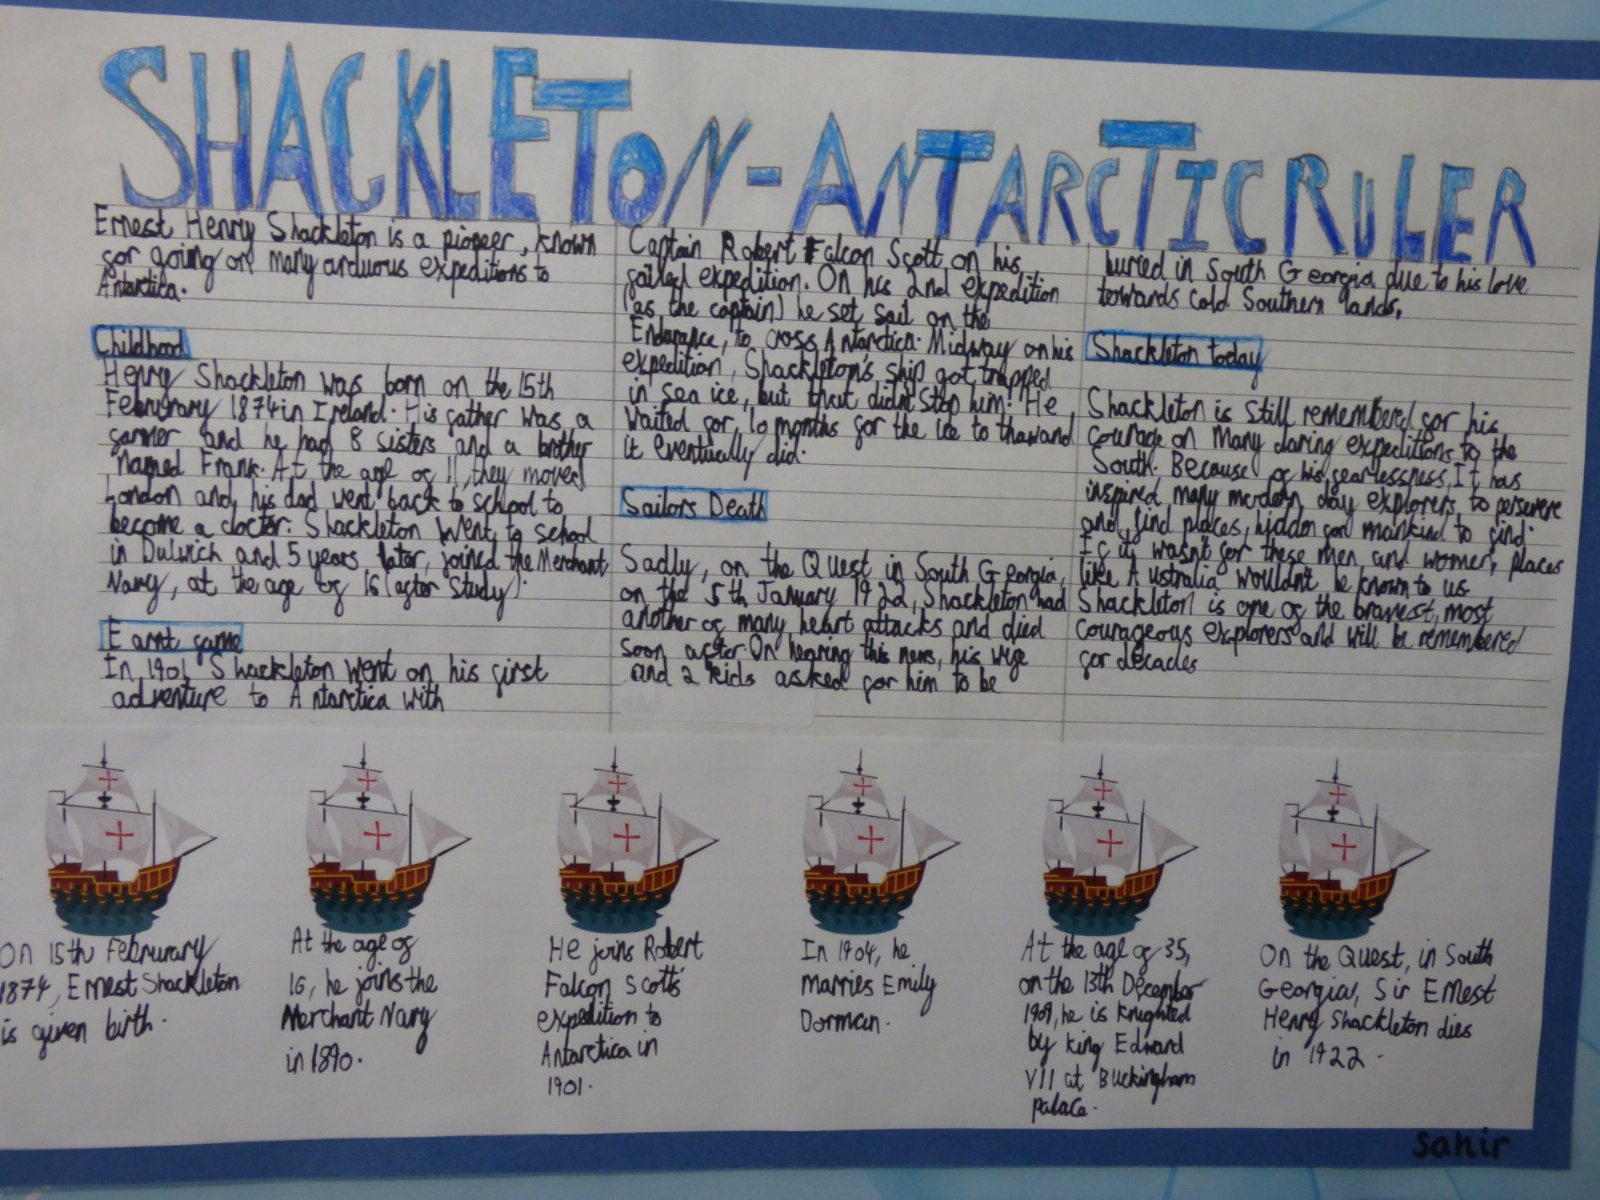 SHACKLETON-ANTARCTIC RULER
Ernest Henry Shackleton is a pioneer, known
for going on many arduous expeditions to
Antarctica.
Childhood
Henry Shackleton was born on the 15th
Februrary 1874 in Ireland. His father was a
farmer and he had 8 sisters and a brother
named Frank. At the age of 11, they moved
London and his dad went back to school to
become a doctor. Shackleton went to school
in Dulwich and 5 years later, joined the Merchant
Navy, at the age of 16 (after study).
Earnt fame
In 1901 Shackleton went on his first
adventure to Antarctica with
Captain Robert Falcon Scott on his
failed expedition. On his 2nd expedition
(as the captain) he set sail on the
Endurance, to cross Antarctica. Midway on his
expedition, Shackleton's ship got trapped
in sea ice, but that didn't stop him! He
waited for 10 months for the ice to thaw and
it eventually did.
Sailors Death
Sadly, on the Quest in South Georgia,
on the 5th January 1922, Shackleton had
another of many heart attacks and died
soon after. On hearing this news, his wife
and 2 kids asked for him to be
buried in South Georgia due to his love
towards cold Southern lands.
Shackleton today
Shackleton is still remembered for his
courage on many daring expeditions to the
South. Because of his fearlessness, It has
inspired many modern day explorers to persevere
and find places, hidden for mankind to find.
If it wasn't for these men and women, places
like Australia wouldn't be known to us
Shackleton is one of the bravest, most
courageous explorers and will be remembered
for decades
On 15th Februrary
1874, Ernest Shackleton
is given birth.
At the age of
16, he joins the
Merchant Navy
in 1890.
He joins Robert
Falcon Scott's
expedition to
Antarctica in
1901.
In 1904, he
marries Emily
Dorman.
At the age of 35,
on the 13th December
1909, he is knighted
by king Edward
VII at Buckingham
palace.
On the Quest, in South
Georgia, Sir Ernest
Henry Shackleton dies
in 1922.
Sahir